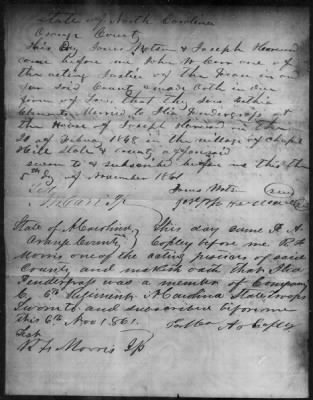 State of North Carolina
Orange County
This Day Jones Watson & Joseph Harwood
came before me John W Carr one of
the acting Justice of the Peace in and
for said County & made oath in due
form of Law that they saw
Married to Pendergrass at
the House of Joseph Harwood on the
of 1848 in the village of Chapel
Hill State & County aforesaid
sworn to & subscribed before me this the
5th day of November 1861
Test Jones Watson (seal)
J W Carr JP Joseph Harwood
State of N Carolina This day came A
Orange County Copley before me R F
Morris one of the acting justices of said
County and maketh oath that
Pendergrass was a member of Company
6th Regiment N Carolina State troops
Sworn to and subscribed before me
this 6th Nov 1861. A Copley
Test
R F Morris JP